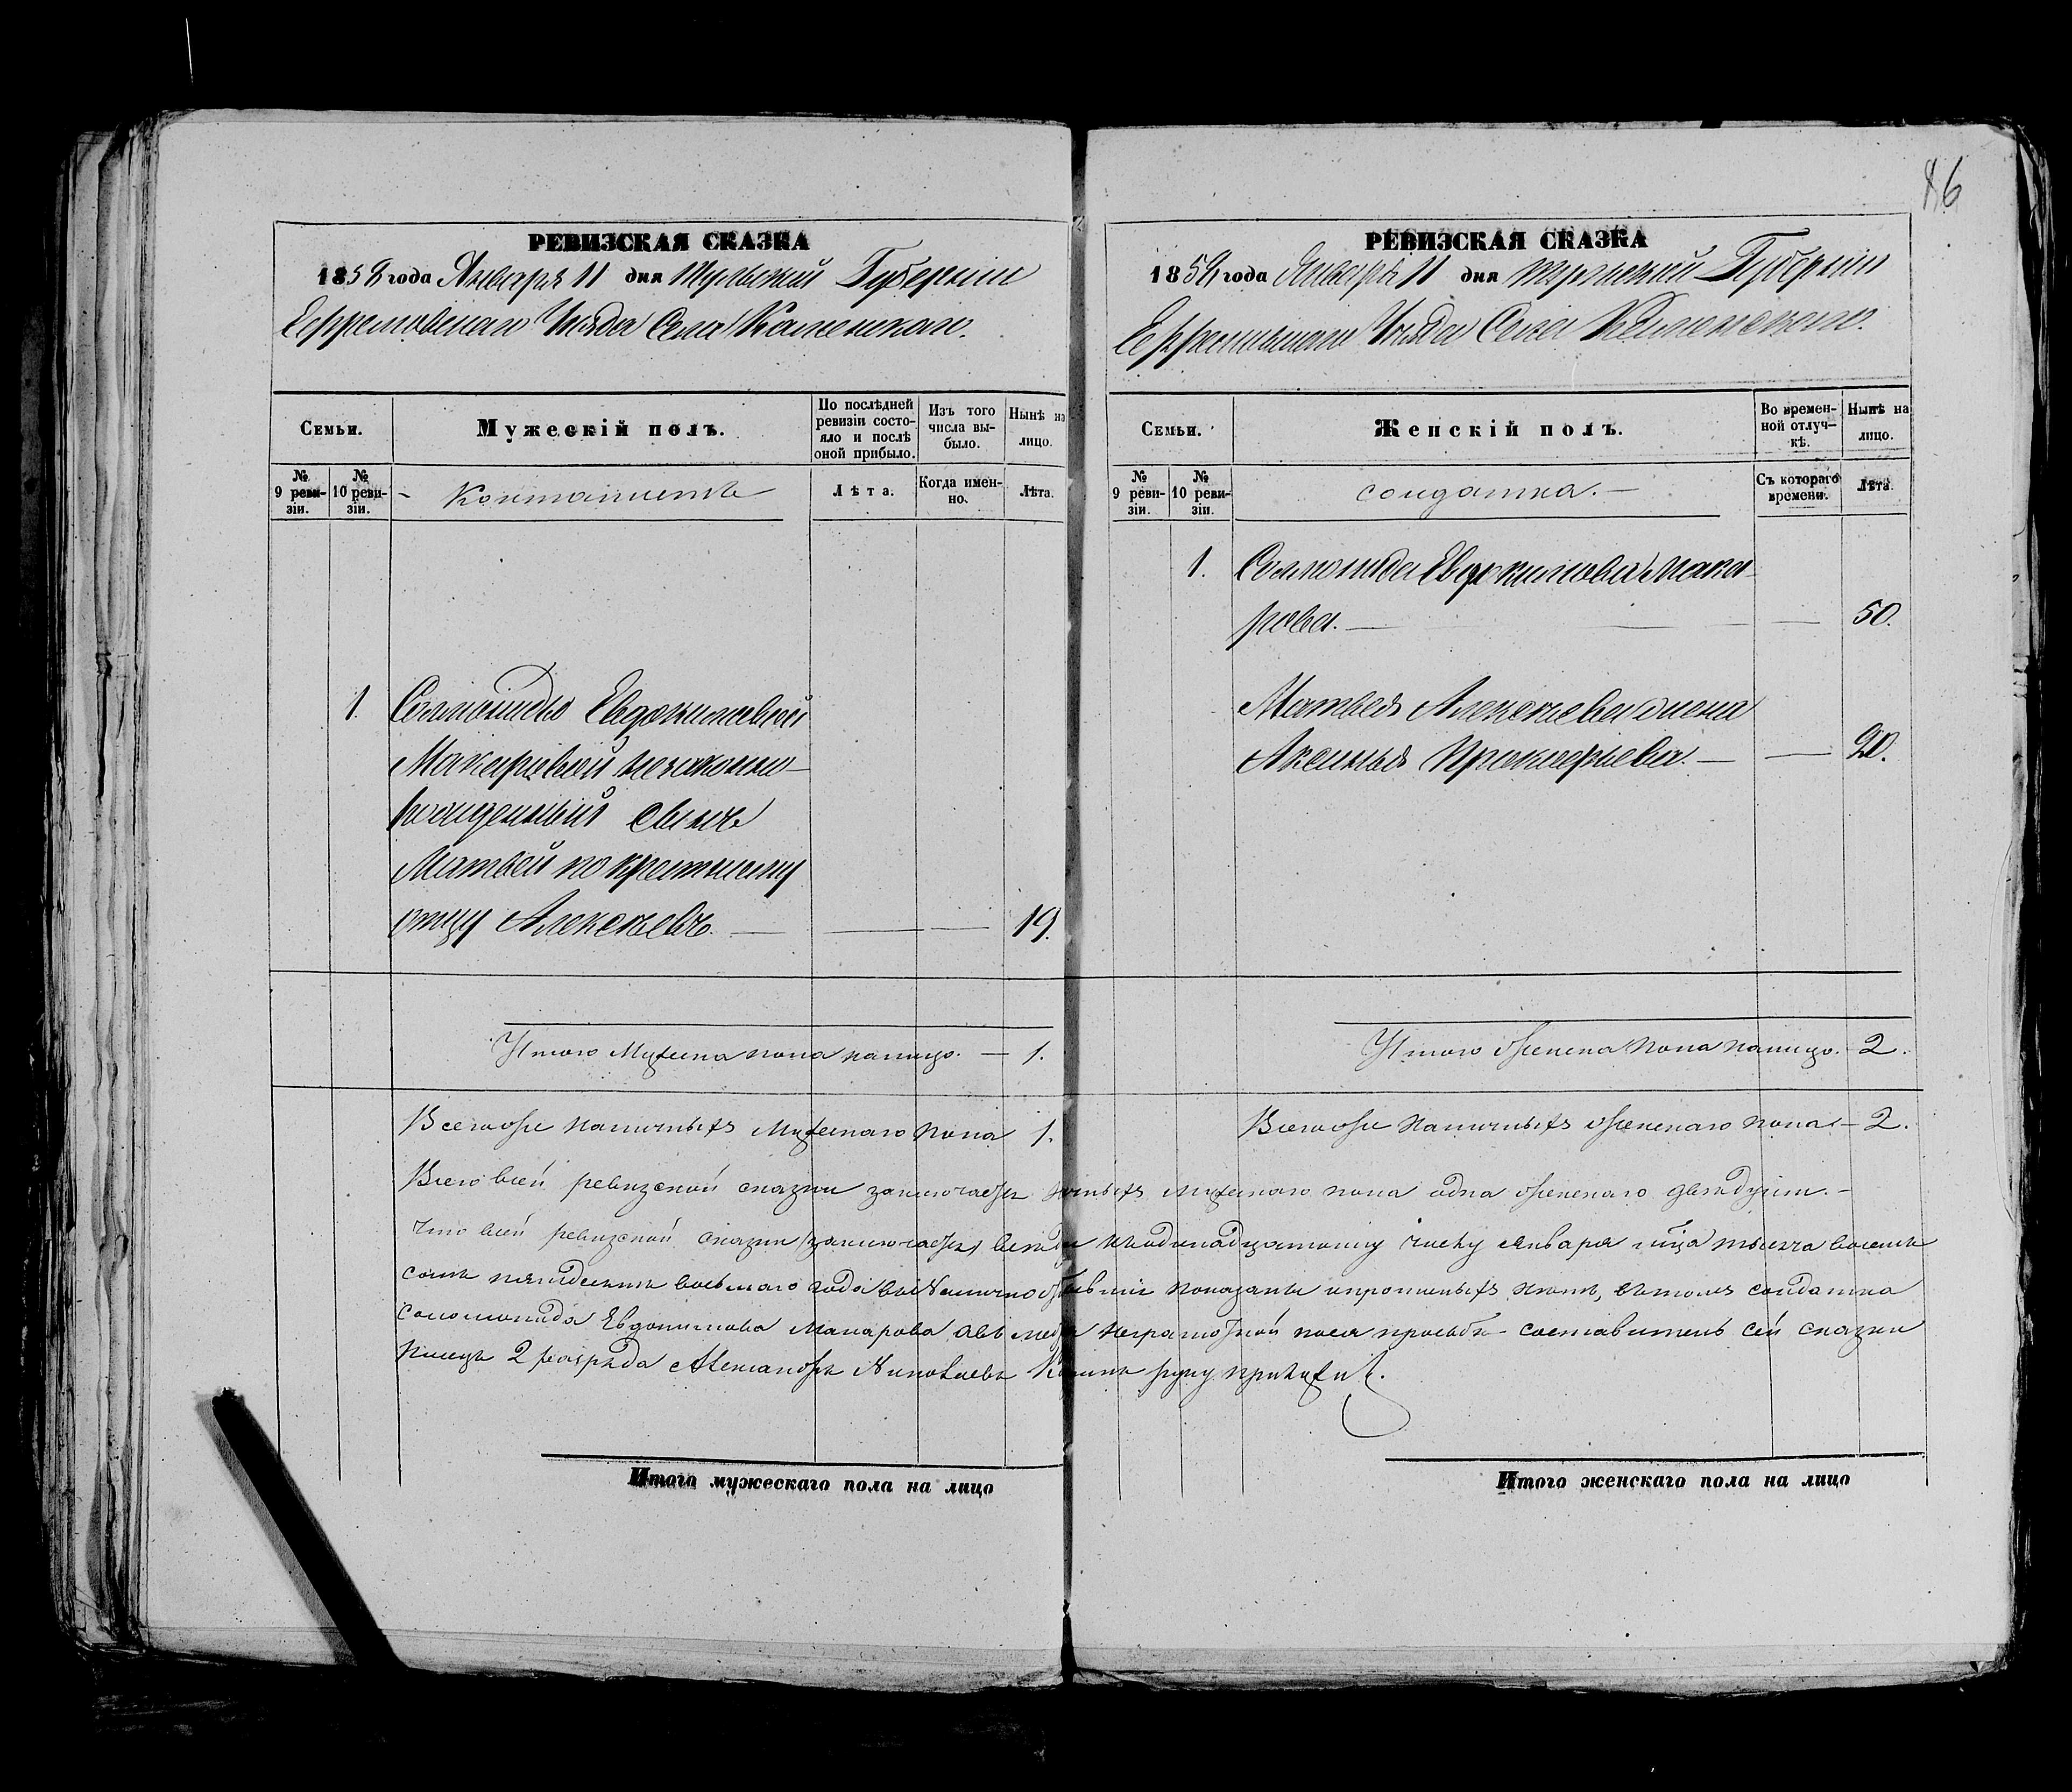 86
РЕВИЗСКАЯ СКАЗКА
1858 года Января 11 дня Тульской Губернии
Ефремовскаго Уѣзда Села Каменскаго.
Семьи.
Мужескій полъ.
По послѣдней ревизіи состояло и послѣ оной прибыло.
Изъ того числа выбыло.
Нынѣ на лицо.
№ 9 ревизіи.
№ 10 ревизіи.
Кантонистъ
Лѣта.
Когда именно.
Лѣта.
1. Соломониды Евдокимовой
Макаровой незаконно-
рожденный сынъ
Матвей по крестному
отцу Алексѣевъ. — 19.
Итого Мужеска пола налицо. — 1.
Всегоже наличныхъ Мужескаго пола 1.
РЕВИЗСКАЯ СКАЗКА
1858 года Января 11 дня Тульской Губернии
Ефремовскаго Уѣзда Села Каменскаго.
Семьи.
Женскій полъ.
Во временной отлучкѣ.
Нынѣ на лицо.
№ 9 ревизіи.
№ 10 ревизіи.
солдатка. —
Съ котораго времени.
Лѣта.
1. Соломонида Евдокимова Мака-
рова. — 50.
Матвея Алексѣева жена
Аксинья Прокофьева. — 20.
Итого женска пола налицо. — 2.
Всегоже наличныхъ женскаго пола — 2.
Всего всей ревизской сказки заключается мужескаго пола одна женскаго двѣ души. —
Что всей ревизской сказки заключается къ одинадцатому числу Января мѣсяца тысяча восемь
сотъ пятьдесятъ восьмаго года показаны и прописныхъ нѣтъ, въ томъ солдатка
Соломонида Евдокимова Макарова а вмѣсто неграмотной по ея прозьбѣ составитель сей сказки
Писецъ 2 разряда Александръ Николаевъ руку приложилъ.
Итого мужескаго пола на лицо
Итого женскаго пола на лицо